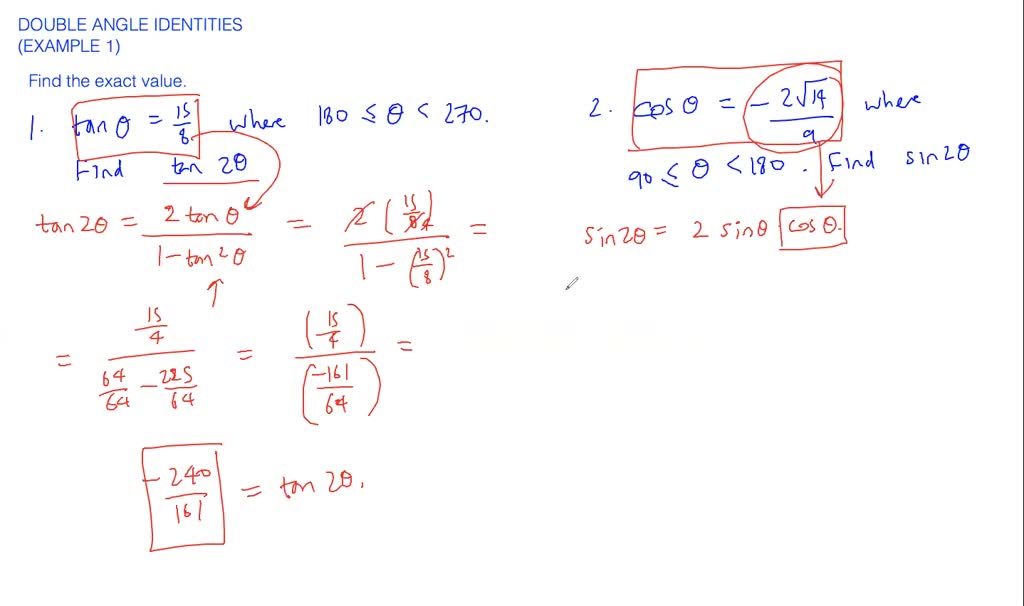 DOUBLE ANGLE IDENTITIES
(EXAMPLE 1)
Find the exact value.
1. tan θ = 15/8 where 180 ≤ θ < 270.
Find tan 2θ
tan 2θ = 2 tan θ / 1 - tan² θ = 2 (15/8 4) / 1 - (15/8)² =
= 15/4 / 64/64 - 225/64 = (15/4) / (-161/64) =
-240/161 = tan 2θ.
2. cos θ = - 2√14/9 where
90 ≤ θ < 180. Find sin 2θ
sin 2θ = 2 sin θ cos θ.